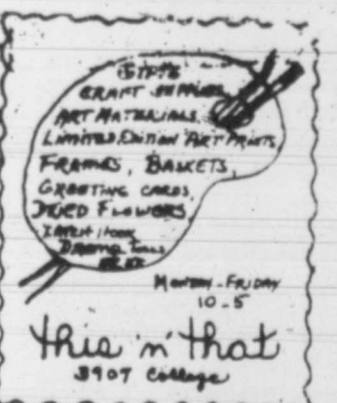 GIFTS
CRAFT SUPPLIES
ART MATERIALS,
LIMITED EDITION ART PRINTS,
FRAMES, BASKETS,
GREETING CARDS,
DRIED FLOWERS,
LATCH HOOK
MONDAY - FRIDAY
10 - 5
this 'n' that
3907 College